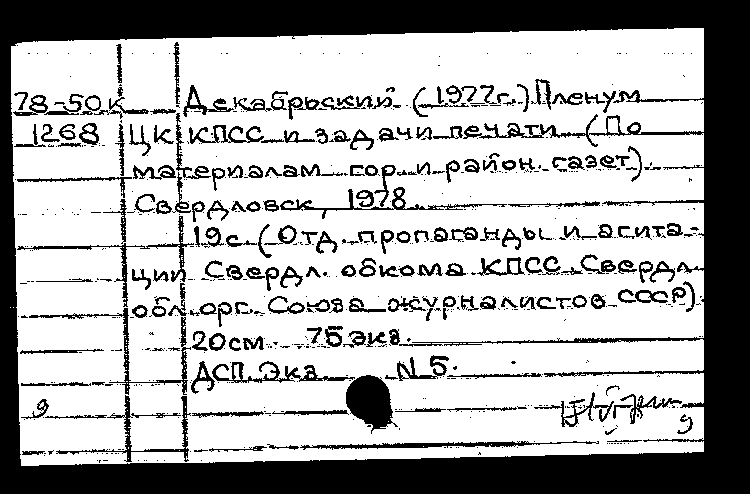 78-50к Декабрьский (1977г.) Пленум
1268 ЦК КПСС и задачи печати (По
материалам гор. и район. газет).
Свердловск, 1978.
19с. (Отд. пропаганды и агита-
ции Свердл. обкома КПСС. Свердл.
обл. орг. Союза журналистов СССР).
20см. 75 экз.
ДСП. Экз. N 5.
9
9